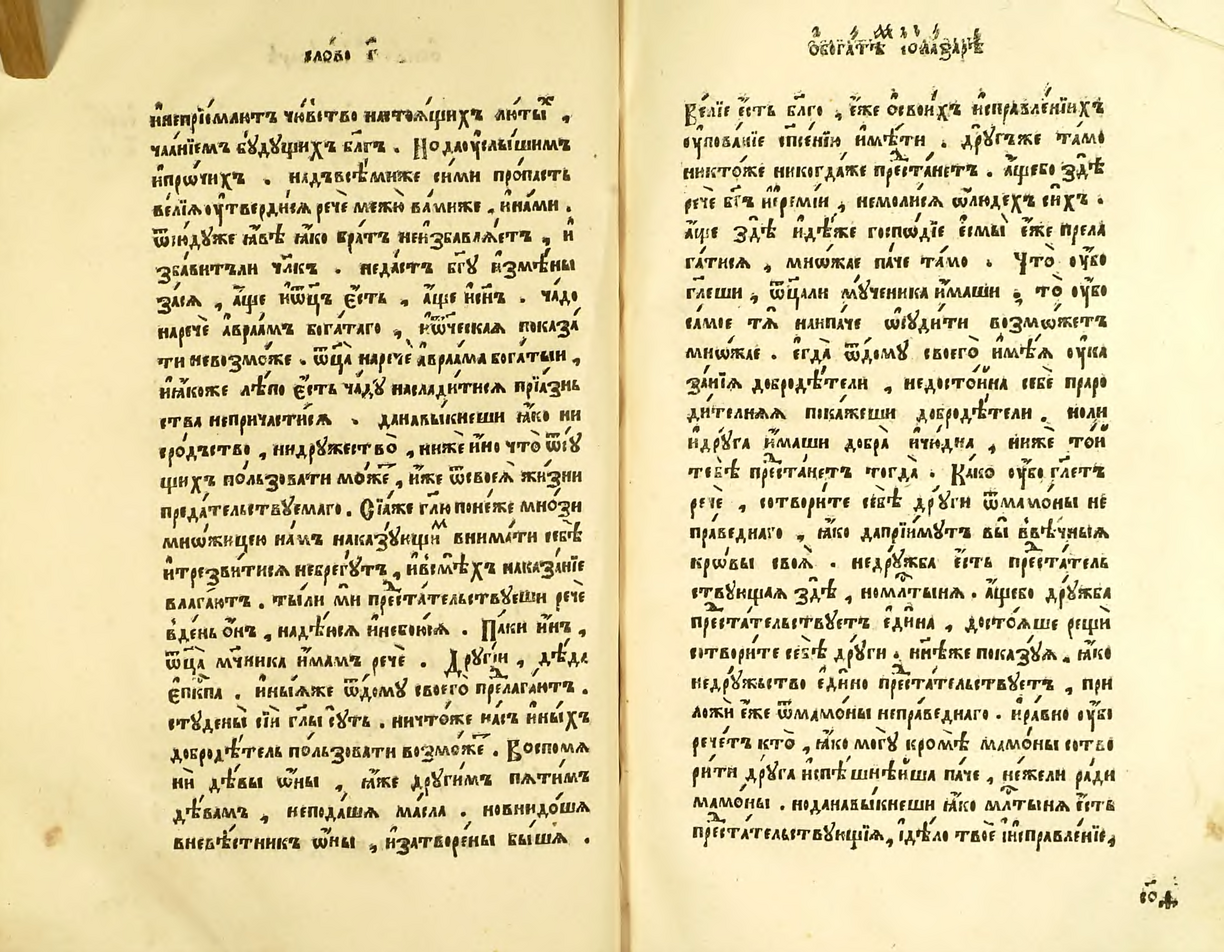 слово г҃
ннепрїе́млютъ чю́вство настоѧ́щихъ лю́ты ,
ча́нїемъ бу́дущихъ бл҃гъ . Но даᲂу҆слы́шимъ
и҆про́чихъ . надъвсѣ́миже си́ми про́пасть
ве́лїѧ ᲂу҆тверди́сѧ рече̑ межю̀ ва́миже , и҆на́ми .
ѿню́дуже ꙗ҆́вѣ ꙗ҆́ко бра́тъ неизбавлѧ́етъ , и҆
зба́витъли чл҃къ . неда́стъ бг҃у и҆змѣ́ны
засѧ̀ , а҆́ще и҆ѿц҃ъ є҆́сть , а҆́ще и҆сн҃ъ . ча́до
нарече̑ а҆враа́мъ бога́таго , и҆ѿч҃еская показа́
ти невозмо́же . ѿц҃а̀ нарече̑ а҆враа́ма бога́тыи ,
и҆ꙗ҆́коже лѣ́по є҆́сть ча́ду наслади́тисѧ прїа́знь
ства неприча́стисѧ . данавы́кнеши ꙗ҆́ко ни
сро́дъство , нидру́жество̀ , нижѐ и҆́но что̀ ѿсу́
щихъ по́льзовати мо́же , и҆́же ѿсвоеѧ̀ жи́зни
преда́тельствуемаго . Сїѧ́же гл҃ю поне́же мно́зи
мно́жицею на́мъ наказу́ющим внима́ти себѣ̀
и҆трезви́тисѧ небрегу́тъ , и҆всмѣ́хъ наказа́нїе
влага́ютъ . ты́ли мѝ предста́тельствуеши рече̑
вде́нь о҆́нъ , надѣ́юсѧ и҆небою́сѧ . Па́ки и҆́нъ ,
ѿц҃а̀ мч҃ника и҆́мамъ рече̑ . Дру́гїи , дѣ́да
є҆пк҃па . и҆ны́ѧже ѿдо́му своего̀ предлага́ютъ .
студе́ны сїѝ гл҃ы су́ть . ничто́же на́съ и҆ны́хъ
добродѣ́тель по́льзовати возмо́же . Воспомѧ
нѝ дѣ́вы ѡ҆́ны , ꙗ҆́же други́мъ пѧти́мъ
дѣ́вамъ , непода́шѧ ма́сла . новнидо́шѧ
вневѣ́стникъ ѡ҆́ны , и҆затворе́ны бы́шѧ .
ѡ҆бога́тѣ и҆ола́зарѣ
Ве́лїе є҆́сть бл҃го , є҆́же ѡ҆свои́хъ и҆справле́нїихъ
ᲂу҆пова́нїе сп҃се́нїю и҆мѣ́ти . дру́гъже та́мо
никто́же никогда́же предста́нетъ . а҆́щебо здѣ̀
рече̑ бг҃ъ и҆еремі́и , немоли́сѧ ѡ҆лю́дехъ си́хъ .
а҆́ще здѣ̀ и҆дѣ́же госпо́дїе є҆смы̀ є҆́же прела
га́тисѧ , мно́жае па́че та́мо . Что̀ ᲂу҆́бо
гл҃еши , ѿц҃али му́ченика и҆́маши ; то̀ ᲂу҆́бо
са́мое тѧ̀ наипа́че ѡ҆суди́ти возмо́жетъ
мно́жае . є҆гда̀ ѿдо́му своего̀ и҆мѣ́ѧ ᲂу҆ка
за́нїѧ добродѣ́тели , недосто́йна себѐ праро
ди́телнѧѧ пока́жеши добродѣ́тели . ноли
и҆дру́га и҆́маши добра̀ и҆чю́дна , нижѐ то́й
тебѣ̀ предста́нетъ тогда̀ . Ка́ко ᲂу҆́бо гл҃етъ
рече̑ , сотвори́те себѣ̀ дру́ги ѿмамо́ны не
пра́веднаго , ꙗ҆́ко дапрїи́мутъ вы̀ ввѣ́чныѧ
кро́вы своѧ̀ . недру́жба є҆́сть предста́тель
ствующаѧ здѣ̀ , номл҃тынѧ . а҆́щебо дру́жба
предста́тельствуетъ є҆ди́на , досто́ѧше рещѝ
сотвори́те себѣ̀ дру́ги . нн҃ѣже показу́ѧ , ꙗ҆́ко
недру́жьство є҆ди́но предста́тельствуетъ , при
ложѝ є҆́же ѿмамо́ны непра́веднаго . и҆ра́вно ᲂу҆́бо
рече́тъ кто̀ , ꙗ҆́ко могу̀ кромѣ̀ мамо́ны сотво
ри́ти дру́га и҆спѣ́шнѣйша па́че , не́жели ра́ди
мамо́ны . ноданавы́кнеши ꙗ҆́ко мл҃тынѧ є҆́сть
предста́тельствующїѧ , и҆дѣ́ло твоѐ и҆и҆справле́нїе ,